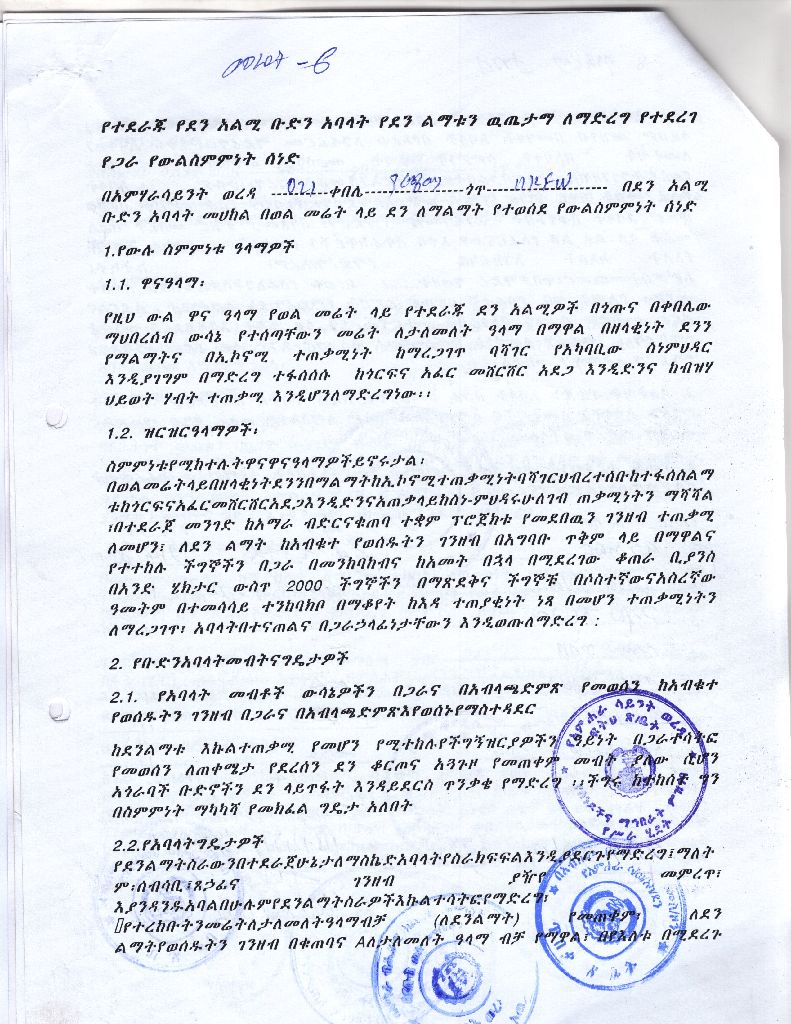 የተደራጁ የደን አልሚ ቡድን አባላት የደን ልማቱን ዉጤታማ ለማድረግ የተደረገ
የጋራ የውልስምምነት ሰነድ
በአምሃራሳይንት ወረዳ 021 ቀበሌ ጎጥ በደን አልሚ
ቡድን አባላት መሀከል በወል መሬት ላይ ደን ለማልማት የተወሰደ የውልስምምነት ሰነድ
1.የውሉ ስምምነቱ ዓላማዎች
1.1. ዋናዓላማ፡
የዚህ ውል ዋና ዓላማ የወል መሬት ላይ የተደራጁ ደን አልሚዎች በጎጡና በቀበሌው
ማህበረሰብ ውሳኔ የተሰጣቸውን መሬት ለታለመለት ዓላማ በማዋል በዘላቂነት ደንን
የማልማትና በኢኮኖሚ ተጠቃሚነት ከማረጋገጥ ባሻገር የአካባቢው ስነምህዳር
እንዲያገግም በማድረግ ተፋሰሱ ከጎርፍና አፈር መሸርሸር አደጋ እንዲድንና ከብዝሃ
ህይወት ሃብት ተጠቃሚ እንዲሆንለማድረግነው፡፡
1.2. ዝርዝርዓላማዎች፡
ስምምነቱየሚከተሉትዋናዋናዓላማዎችይኖሩታል፡
በወልመሬትላይበዘላቂነትደንንበማልማትከኢኮኖሚተጠቃሚነትባሻገርህብረተሰቡከተፋሰስልማ
ቱከጎርፍናአፈርመሸርሸርአደጋእንዲድንናአጠቃላይከስነ-ምህዳሩሁለገብ ጠቃሚነትን ማሻሻል
፡በተደራጀ መንገድ ከአማራ ብድርናቁጠባ ተቋም ፕሮጀክቱ የመደበዉን ገንዘብ ተጠቃሚ
ለመሆን፤ ለደን ልማት ከአብቁተ የወሰዱትን ገንዘብ በአግባቡ ጥቅም ላይ በማዋልና
የተተከሉ ችግኞችን በጋራ በመንከባከብና ከአመት በኋላ በሚደረገው ቆጠራ ቢያንስ
በአንድ ሄክታር ውስጥ 2000 ችግኞችን በማጽደቅና ችግኞቹ በሶስተኛውናአስረኛው
ዓመትም በተመሳሳይ ተንከባክቦ በማቆየት ከእዳ ተጠያቂነት ነጻ በመሆን ተጠቃሚነትን
ለማረጋገጥ፤ አባላትበተናጠልና በጋራኃላፊነታቸውን እንዲወጡለማድረግ ፡
2. የቡድንአባላትመብትናግዴታዎች
2.1. የአባላት መብቶች ውሳኔዎችን በጋራና በአብላጫድምጽ የመወሰን ከአብቁተ
የወሰዱትን ገንዘብ በጋራና በአብላጫድምጽእየወሰኑየማስተዳደር
ከደንልማቱ እኩልተጠቃሚ የመሆን የሚተከሉየችግኝዝርያዎችን ዓይነት በጋራተሳትፎ
የመወሰን ለጠቀሜታ የደረሰን ደን ቆርጦና አጓጉዞ የመጠቀም መብት ያለው ሲሆን
አጎራባች ቡድኖችን ደን ላይጥፋት እንዳይደርስ ጥንቃቄ የማድረግ ፡፡ችግሩ ከተከሰተ ግን
በስምምነት ማካካሻ የመክፈል ግዴታ አለበት
2.2.የአባላትግዴታዎች
የደንልማትስራውንበተደራጀሁኔታለማስኬድአባላትየስራክፍፍልእንዲያደርጉየማድረግ፤ማለት
ም፡ሰብሳቢ፤ጸኃፊና ገንዘብ ያዥየ መምረጥ፤
እያንዳንዱአባልበሁሉምየደንልማትስራዎችእኩልተሳትፎየማድረግ፤
የተረከቡትንመሬትለታለመለትዓላማብቻ (ለደንልማት) የመጠቀም፤ ለደን
ልማትየወሰዱትን ገንዘብ በቁጠባና Aለታለመለት ዓላማ ብቻ የማዋል፤ በየእለቱ በሚደረጉ